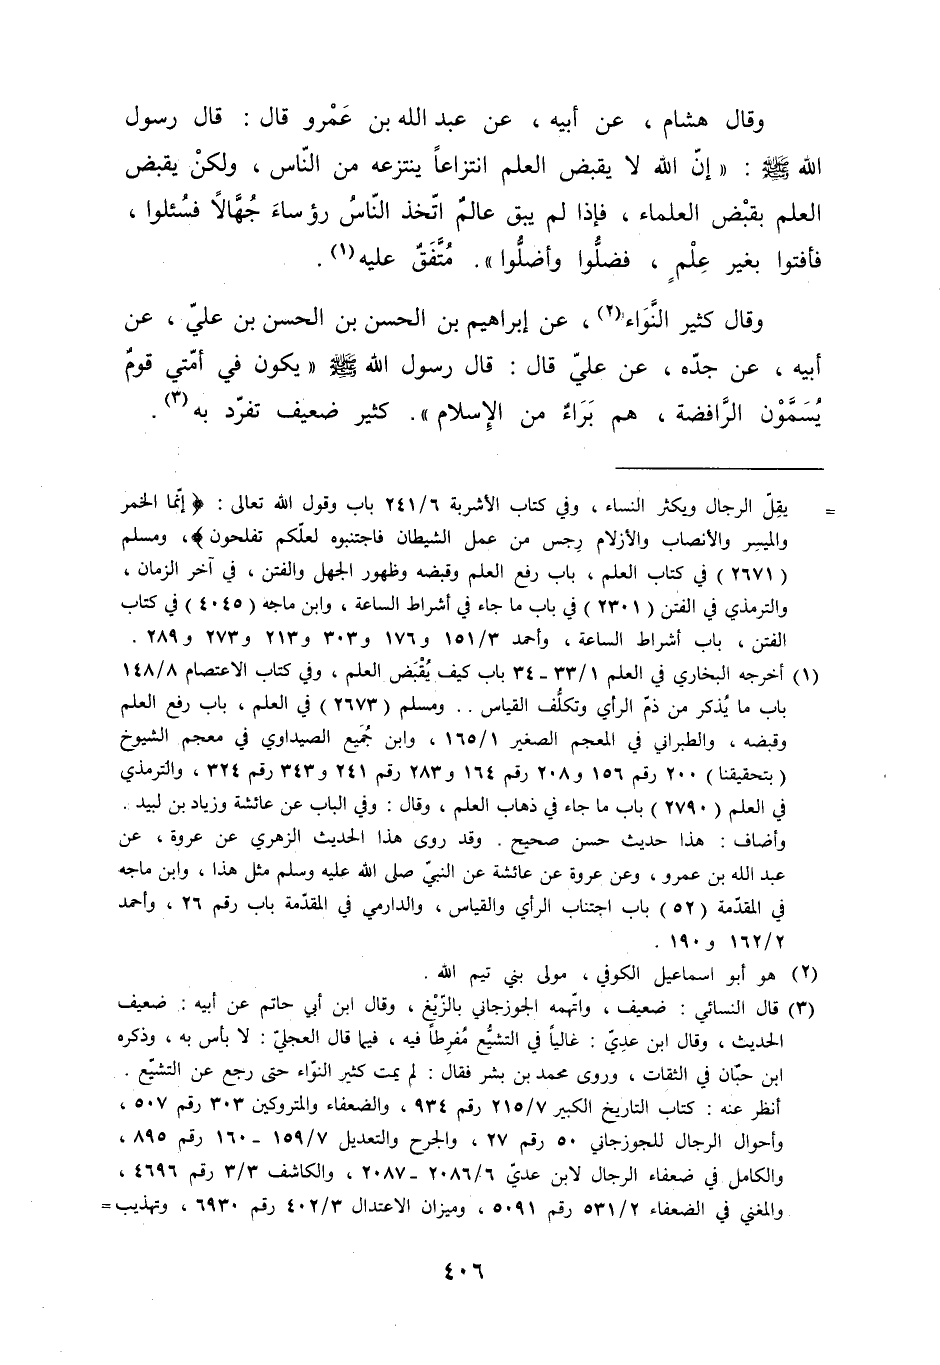 وقال هشام ، عن أبيه ، عن عبد الله بن عَمْرو قال : قال رسول
الله ﷺ : « إنّ الله لا يقبض العلم انتزاعاً ينتزعه من النّاس ، ولكنْ يقبض
العلم بقبْض العلماء ، فإذا لم يبق عالمٌ اتّخذ النّاسُ رؤساءَ جُهَّالاً فسُئلوا ،
فأفتوا بغير عِلْمٍ ، فضلُّوا وأضلُّوا ». مُتَّفَقٌ عليه(١) .
وقال كثير النَّوَاء(٢) ، عن إبراهيم بن الحسن بن الحسن بن عليّ ، عن
أبيه ، عن جدّه ، عن عليّ قال : قال رسول الله ﷺ « يكون في أمّتي قومٌ
يُسَمَّوْن الرَّافضة ، هم بَرَاءٌ من الإِسلام ». كثير ضعيف تفرّد به(٣) .
= يقِلّ الرجال ويكثر النساء ، وفي كتاب الأشربة ٢٤١/٦ باب وقول الله تعالى : ﴿ إنّما الخمر
والميسِر والأنصاب والأزلام رِجس من عمل الشيطان فاجتنبوه لعلّكم تفلحون ﴾، ومسلم
( ٢٦٧١ ) في كتاب العلم ، باب رفع العلم وقبضه وظهور الجهل والفتن ، في آخر الزمان ،
والترمذي في الفتن ( ٢٣٠١ ) في باب ما جاء في أشراط الساعة ، وابن ماجه ( ٤٠٤٥ ) في كتاب
الفتن ، باب أشراط الساعة ، وأحمد ١٥١/٣ و١٧٦ و٢٠٣ و٢١٣ و٢٧٣ و٢٨٩ .
(١) أخرجه البخاري في العلم ٣٣/١ - ٣٤ باب كيف يُقْبَض العلم ، وفي كتاب الاعتصام ١٤٨/٨
باب ما يُذكر من ذمّ الرأي وتكلُّف القياس .. ومسلم ( ٢٦٧٣ ) في العلم ، باب رفع العلم
وقبضه ، والطبراني في المعجم الصغير ١٦٥/١ ، وابن جُميع الصيداوي في معجم الشيوخ
( بتحقيقنا ) ٢٠٠ رقم ١٥٦ و٢٠٨ رقم ١٦٤ و٢٨٣ رقم ٢٤١ و٣٤٣ رقم ٣٢٤ ، والترمذي
في العلم ( ٢٧٩٠ ) باب ما جاء في ذهاب العلم ، وقال : وفي الباب عن عائشة وزياد بن لبيد .
وأضاف : هذا حديث حسن صحيح . وقد روى هذا الحديث الزهري عن عروة ، عن
عبد الله بن عمرو ، وعن عروة عن عائشة عن النبيّ صلى الله عليه وسلم مثل هذا ، وابن ماجه
في المقدّمة ( ٥٢ ) باب اجتناب الرأي والقياس ، والدارمي في المقدّمة باب رقم ٢٦ ، وأحمد
١٦٢/٢ و١٩٠ .
(٢) هو أبو اسماعيل الكوفي ، مولى بني تيم الله .
(٣) قال النسائي : ضعيف ، واتّهمه الجوزجاني بالزّيْغ ، وقال ابن أبي حاتم عن أبيه : ضعيف
الحديث ، وقال ابن عديّ : غالياً في التشيُّع مُفرِطاً فيه ، فيما قال العجليّ : لا بأس به ، وذكره
ابن حبّان في الثقات ، وروى محمد بن بشر فقال : لم يمت كثير النوّاء حتى رجع عن التشيّع .
أنظر عنه : كتاب التاريخ الكبير ٢١٥/٧ رقم ٩٣٤ ، والضعفاء والمتروكين ٣٠٣ رقم ٥٠٧ ،
وأحوال الرجال للجوزجاني ٥٠ رقم ٢٧ ، والجرح والتعديل ١٥٩/٧ - ١٦٠ رقم ٨٩٥ ،
والكامل في ضعفاء الرجال لابن عديّ ٢٠٨٦/٦ - ٢٠٨٧ ، والكاشف ٣/٣ رقم ٤٦٩٦ ،
والمغني في الضعفاء ٥٣١/٢ رقم ٥٠٩١ ، وميزان الاعتدال ٤٠٢/٣ رقم ٦٩٣٠ ، وتهذيب =
٤٠٦